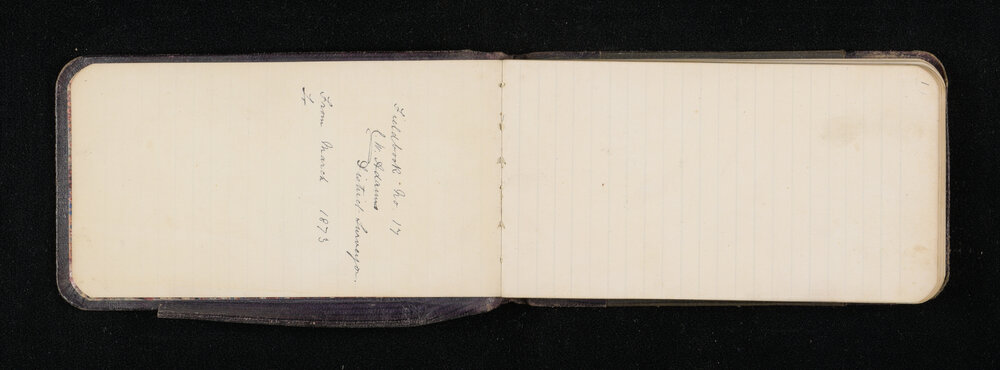 Fieldbook No. 17
C. W. Adams
District Surveyor.
From March 1873
To
1